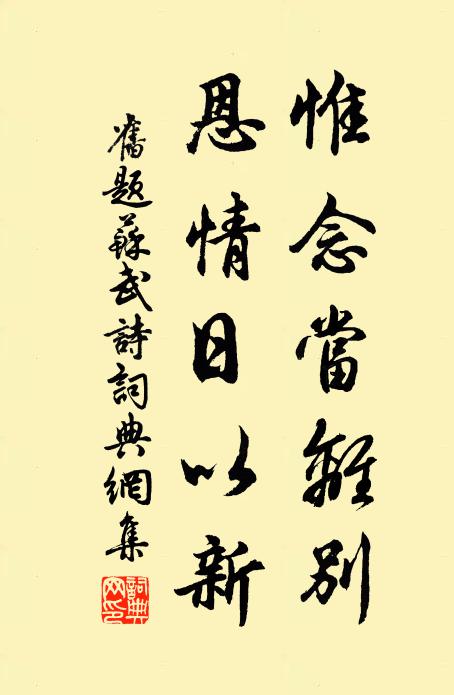 惟念當離別
恩情日以新
舊題蘇武詩詞典網集
詞典網印